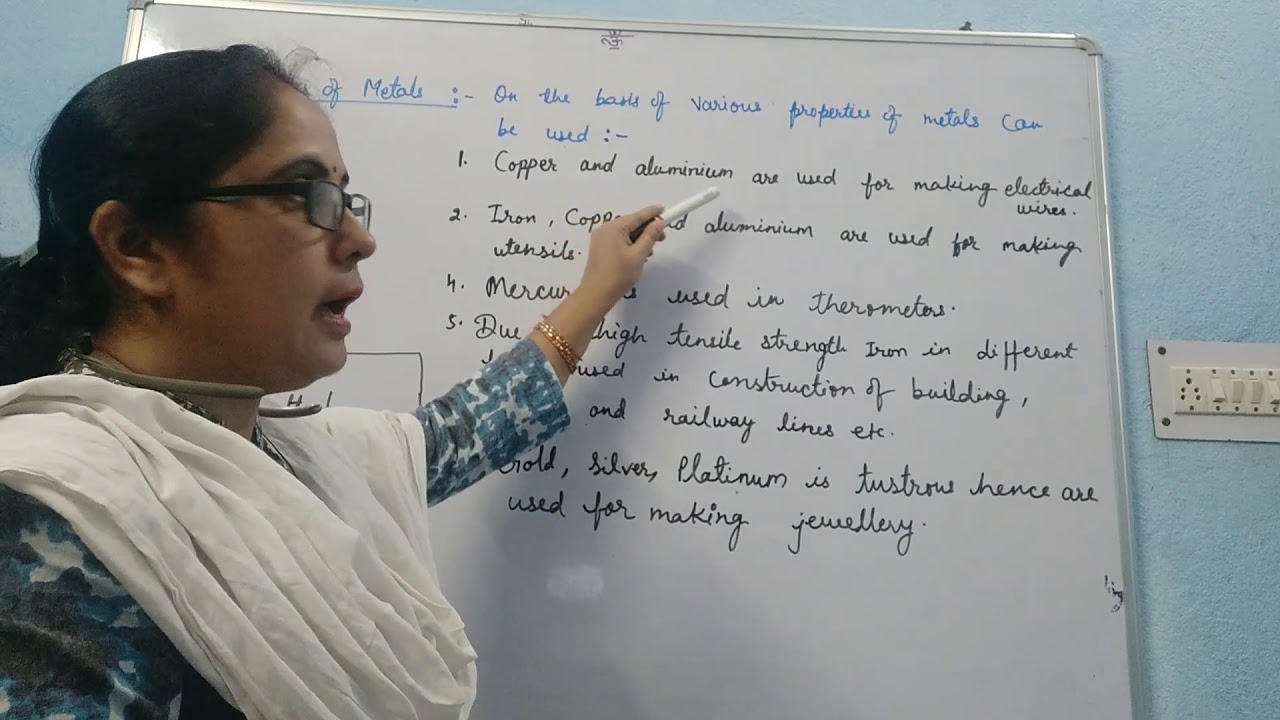 ॐ
of Metals :- On the basis of various properties of metals can
be used :-
1. Copper and aluminium are used for making electrical
wires.
2. Iron, Coppe d aluminium are used for making
utensils.
4. Mercur s used in therometers.
5. Due high tensile strength Iron in different
used in construction of building,
and railway lines etc.
Gold, Silver, Platinum is tustrous hence are
used for making jewellery.
ling